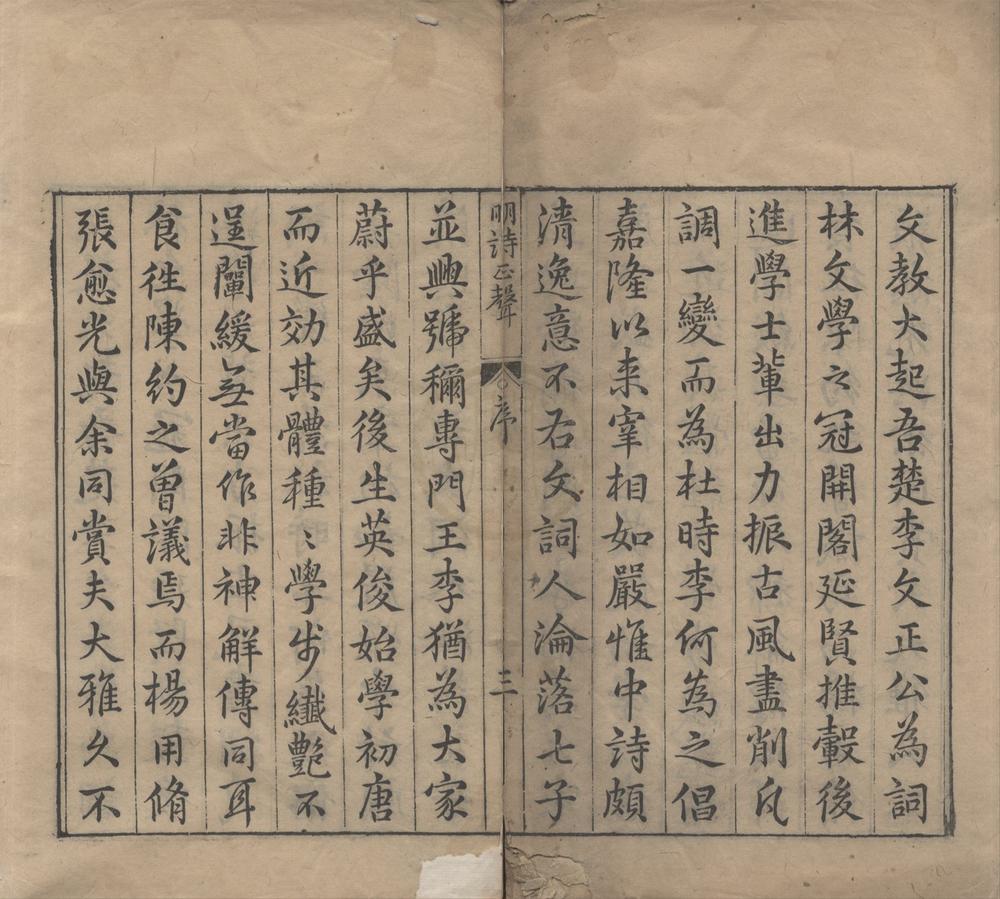 文教大起吾楚李文正公為詞
林文學之冠開閣延賢推轂後
進學士軰出力振古風盡削凡
調一變而為杜時李何為之倡
嘉隆以来宰相如嚴惟中詩頗
清逸意不右文詞人淪落七子
並興號稱專門王李猶為大家
明詩正聲
序
三
蔚乎盛矣後生英俊始學初唐
而近効其體種〻學步纖艷不
逞闡緩無當作非神解傳同耳
食徃陳約之曾議焉而楊用脩
張愈光與余同賞夫大雅久不